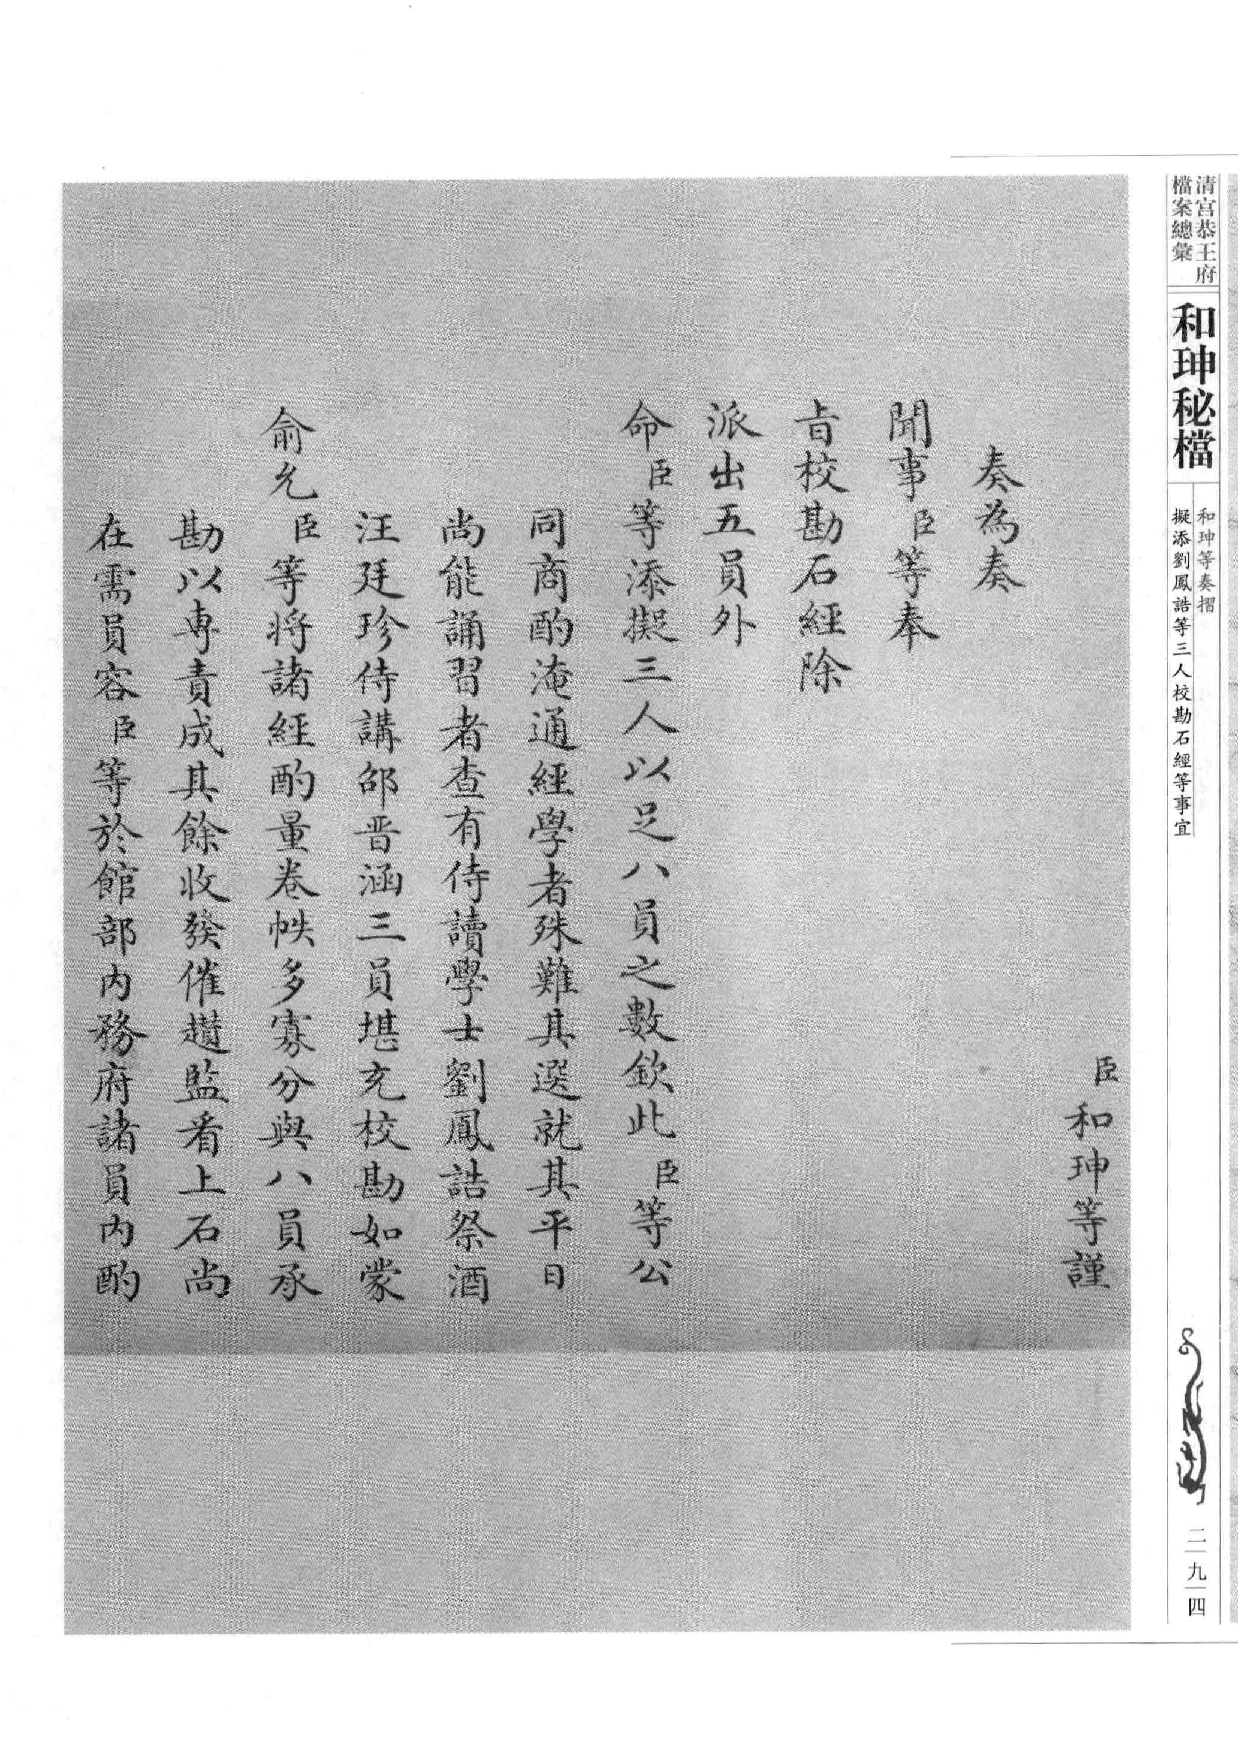 清宮恭王府
檔案總彙
和珅秘檔
和珅等奏摺
擬添劉鳳誥等三人校勘石經等事宜
二九四
臣和珅等謹
奏為奏
聞事臣等奉
旨校勘石經除
派出五員外
命臣等添擬三人以足八員之數欽此臣等公
同商酌淹通經學者殊難其選就其平日
尚能誦習者查有侍讀學士劉鳳誥祭酒
汪廷珍侍講邵晋涵三員堪充校勘如蒙
俞允臣等將諸經酌量卷帙多寡分與八員承
勘以專責成其餘收發催趲監看上石尚
在需員容臣等於館部內務府諸員內酌